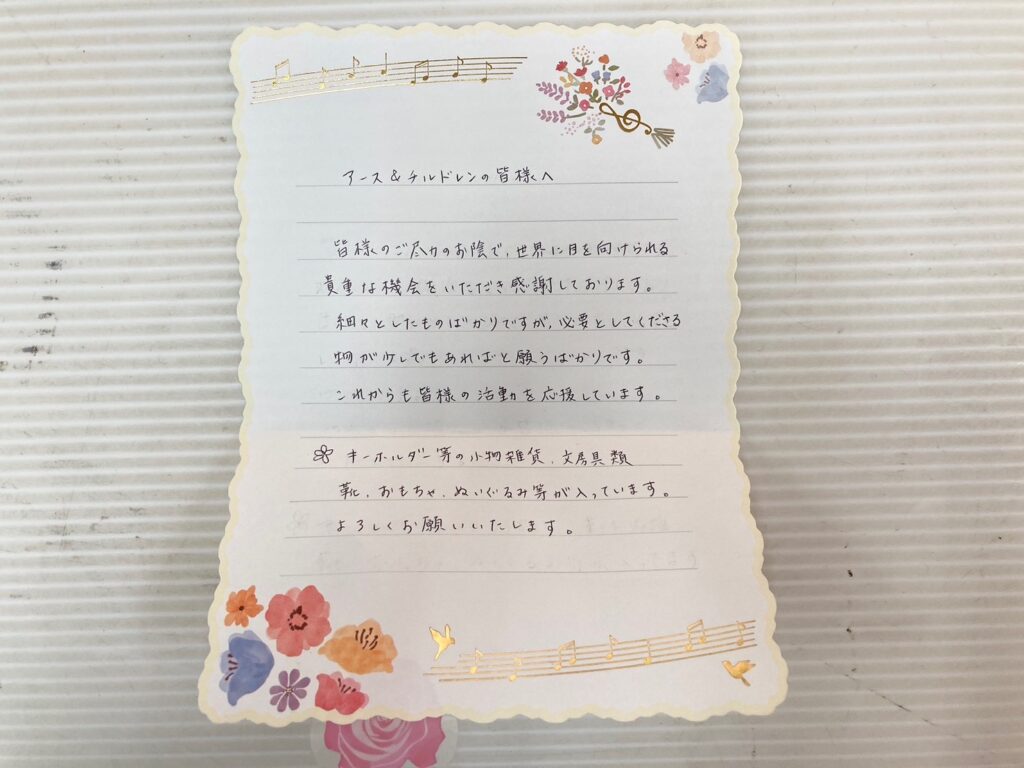 アース&チルドレンの皆様へ
皆様のご尽力のお陰で、世界に目を向けられる
貴重な機会をいただき感謝しております。
細々としたものばかりですが、必要としてくださる
物が少しでもあればと願うばかりです。
これからも皆様の活動を応援しています。
キーホルダー等の小物雑貨、文房具類
靴、おもちゃ、ぬいぐるみ等が入っています。
よろしくお願いいたします。